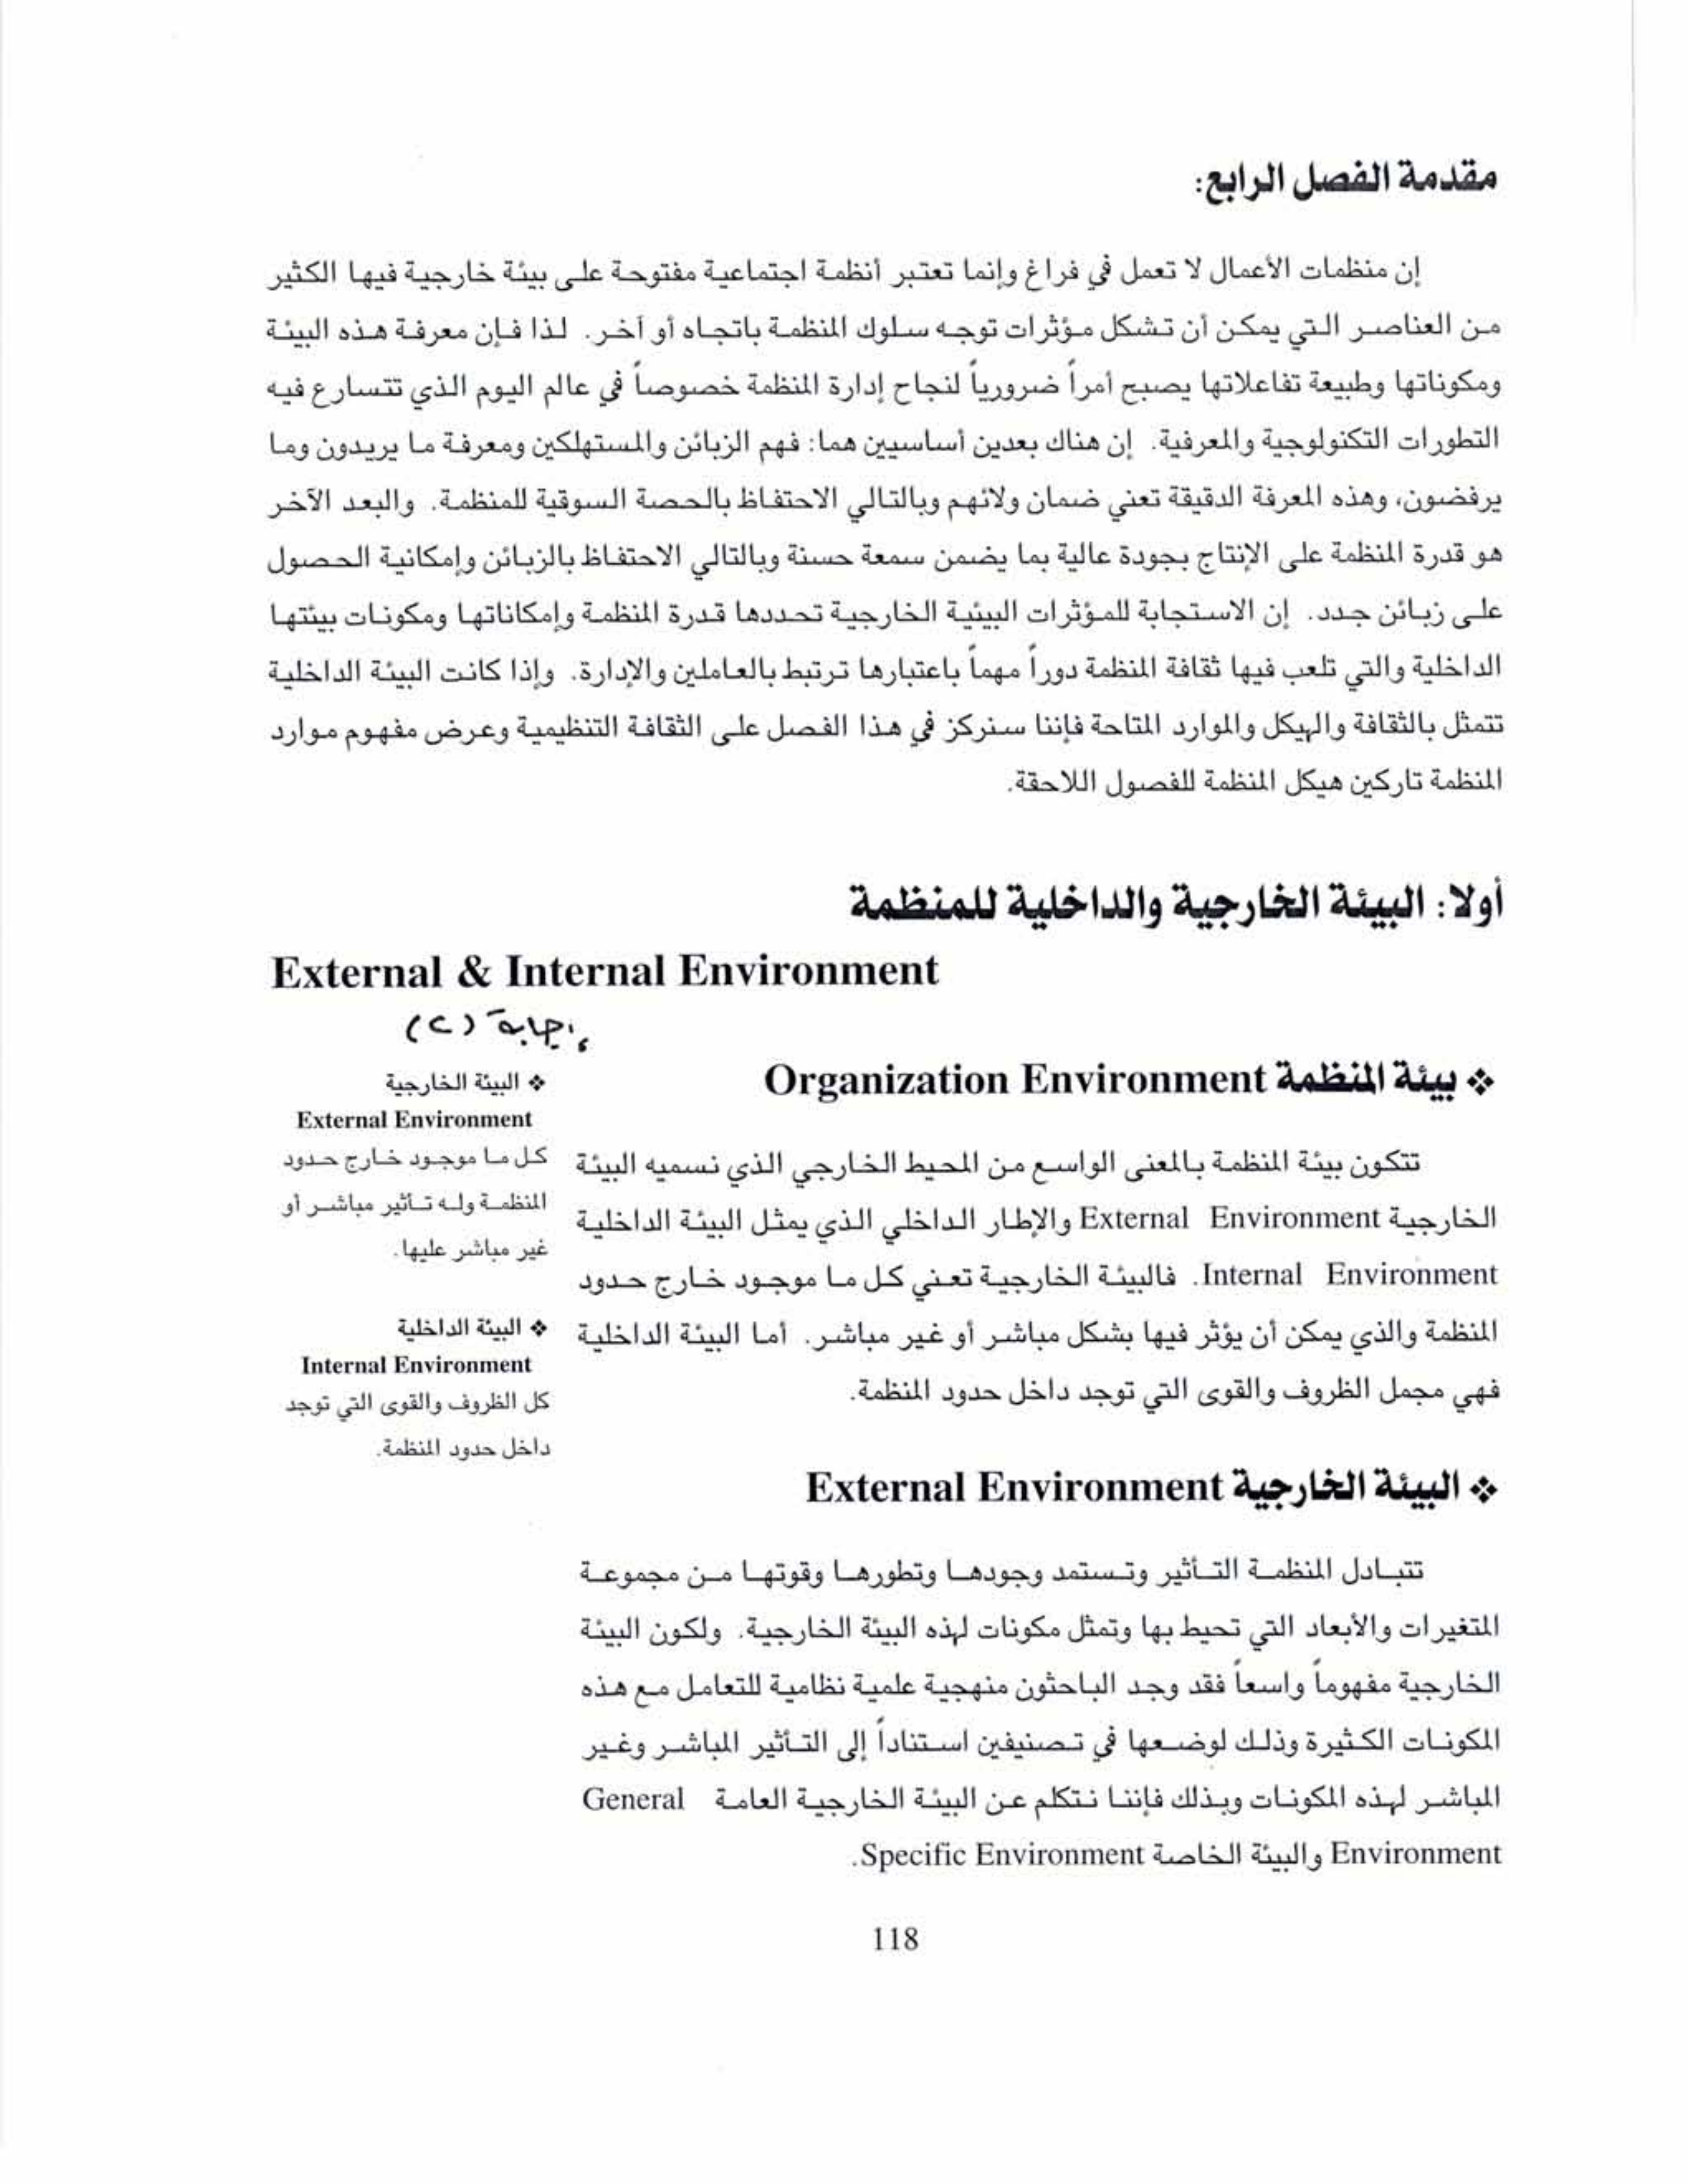 مقدمة الفصل الرابع:
إن منظمات الأعمال لا تعمل في فراغ وإنما تعتبر أنظمة اجتماعية مفتوحة على بيئة خارجية فيها الكثير
من العناصر التي يمكن أن تشكل مؤثرات توجه سلوك المنظمة باتجاه أو آخر. لذا فإن معرفة هذه البيئة
ومكوناتها وطبيعة تفاعلاتها يصبح أمراً ضرورياً لنجاح إدارة المنظمة خصوصاً في عالم اليوم الذي تتسارع فيه
التطورات التكنولوجية والمعرفية. إن هناك بعدين أساسيين هما: فهم الزبائن والمستهلكين ومعرفة ما يريدون وما
يرفضون، وهذه المعرفة الدقيقة تعني ضمان ولائهم وبالتالي الاحتفاظ بالحصة السوقية للمنظمة. والبعد الآخر
هو قدرة المنظمة على الإنتاج بجودة عالية بما يضمن سمعة حسنة وبالتالي الاحتفاظ بالزبائن وإمكانية الحصول
على زبائن جدد. إن الاستجابة للمؤثرات البيئية الخارجية تحددها قدرة المنظمة وإمكاناتها ومكونات بيئتها
الداخلية والتي تلعب فيها ثقافة المنظمة دوراً مهماً باعتبارها ترتبط بالعاملين والإدارة. وإذا كانت البيئة الداخلية
تتمثل بالثقافة والهيكل والموارد المتاحة فإننا سنركز في هذا الفصل على الثقافة التنظيمية وعرض مفهوم موارد
المنظمة تاركين هيكل المنظمة للفصول اللاحقة.
أولا: البيئة الخارجية والداخلية للمنظمة
External & Internal Environment
إجابة (ب)
❖ بيئة المنظمة Organization Environment
تتكون بيئة المنظمة بالمعنى الواسع من المحيط الخارجي الذي نسميه البيئة
الخارجية External Environment والإطار الداخلي الذي يمثل البيئة الداخلية
Internal Environment. فالبيئة الخارجية تعني كل ما موجود خارج حدود
المنظمة والذي يمكن أن يؤثر فيها بشكل مباشر أو غير مباشر. أما البيئة الداخلية
فهي مجمل الظروف والقوى التي توجد داخل حدود المنظمة.
❖ البيئة الخارجية
External Environment
كل ما موجود خارج حدود
المنظمة وله تأثير مباشر أو
غير مباشر عليها.
❖ البيئة الداخلية
Internal Environment
كل الظروف والقوى التي توجد
داخل حدود المنظمة.
❖ البيئة الخارجية External Environment
تتبادل المنظمة التأثير وتستمد وجودها وتطورها وقوتها من مجموعة
المتغيرات والأبعاد التي تحيط بها وتمثل مكونات لهذه البيئة الخارجية. ولكون البيئة
الخارجية مفهوماً واسعاً فقد وجد الباحثون منهجية علمية نظامية للتعامل مع هذه
المكونات الكثيرة وذلك لوضعها في تصنيفين استناداً إلى التأثير المباشر وغير
المباشر لهذه المكونات وبذلك فإننا نتكلم عن البيئة الخارجية العامة General
Environment والبيئة الخاصة Specific Environment.
118